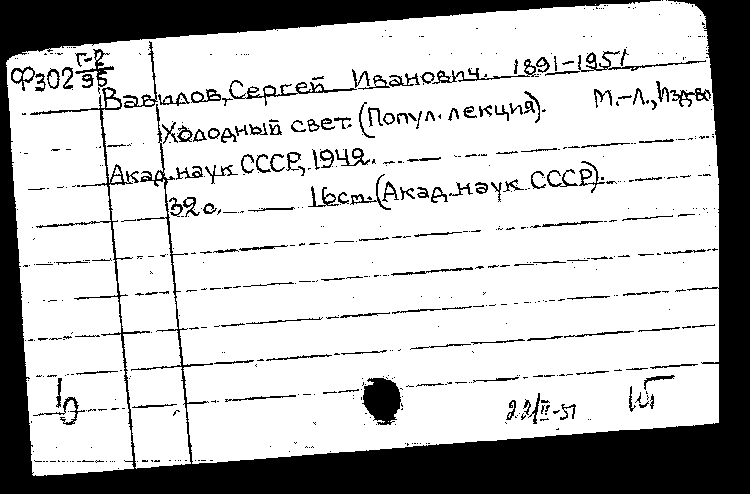 Г-2
Ф302 95
Вавилов, Сергей Иванович. 1891-1951
Холодный свет. (Попул. лекция). М.-Л., Изд-во
Акад. наук СССР, 1942.
32 с. 16 см. (Акад. наук СССР).
22/II-51